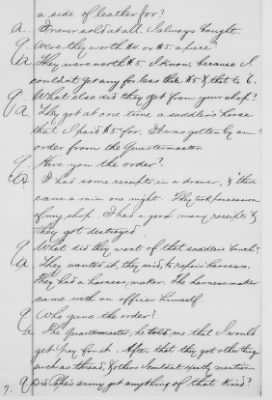 a side of leather for?
A. I never sold at all. I always bought.
Q. Were they worth $4. or $5. apiece?
A. They were worth $5. I know, because I
couldn't get any for less than $5 & that to 6.
Q. What else did they get from your shop?
A. They got at one time a saddler's horse
that I paid $5 for. It was gotten by an
order from the Quartermaster.
Q. Have you the order?
A. I had some receipts in a drawer, & there
came a rain one night. They took possession
of my shop. I had a good many receipts &
they got destroyed.
Q. What did they want of that saddler's bench?
A. They wanted it, they said, to repair harness.
They had a harness maker. The harness maker
came with an officer himself.
Q. Who gave the order?
A. The Quartermaster, he told me that I would
get pay for it. After that they got other things
such as thread, & others I couldn't exactly mention.
7. Q. Did the army get anything of that kind?